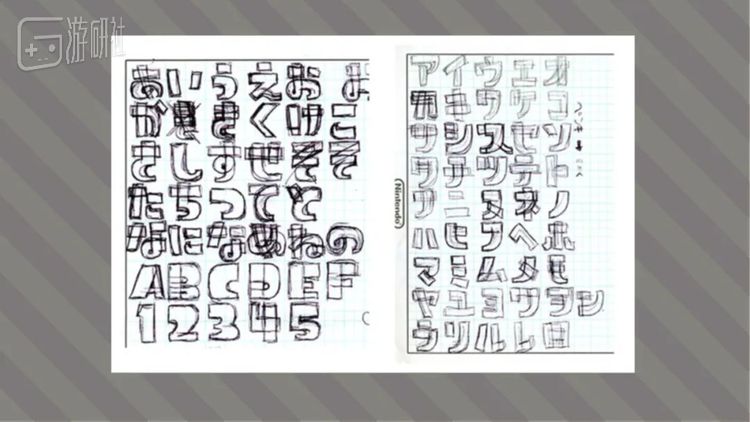 游研社
あいうえお お
か き く け こ
さ し す せ そ そ
た ち つ て と
な に な ぬ ね の
A B C D E F
1 2 3 4 5
Nintendo
ア イ ウ エ オ
キ ク ケ コ
サ シ ス セ ソ
タ チ ツ テ ト
ナ ニ ヌ ネ ノ
ハ ヒ フ ヘ ホ
マ ミ ム メ モ
ヤ ユ ヨ ワ ヲ ン
ラ リ ル レ ロ